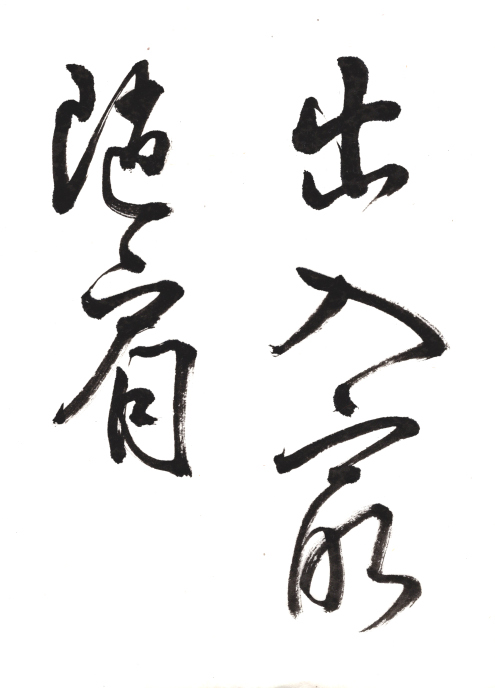 出入最
随肩